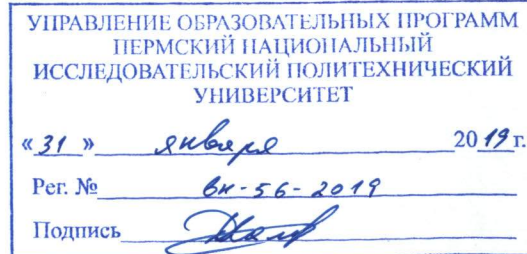 УПРАВЛЕНИЕ ОБРАЗОВАТЕЛЬНЫХ ПРОГРАММ
ПЕРМСКИЙ НАЦИОНАЛЬНЫЙ
ИССЛЕДОВАТЕЛЬСКИЙ ПОЛИТЕХНИЧЕСКИЙ
УНИВЕРСИТЕТ
« 31 » января 2019 г.
Рег. № вн-56-2019
Подпись